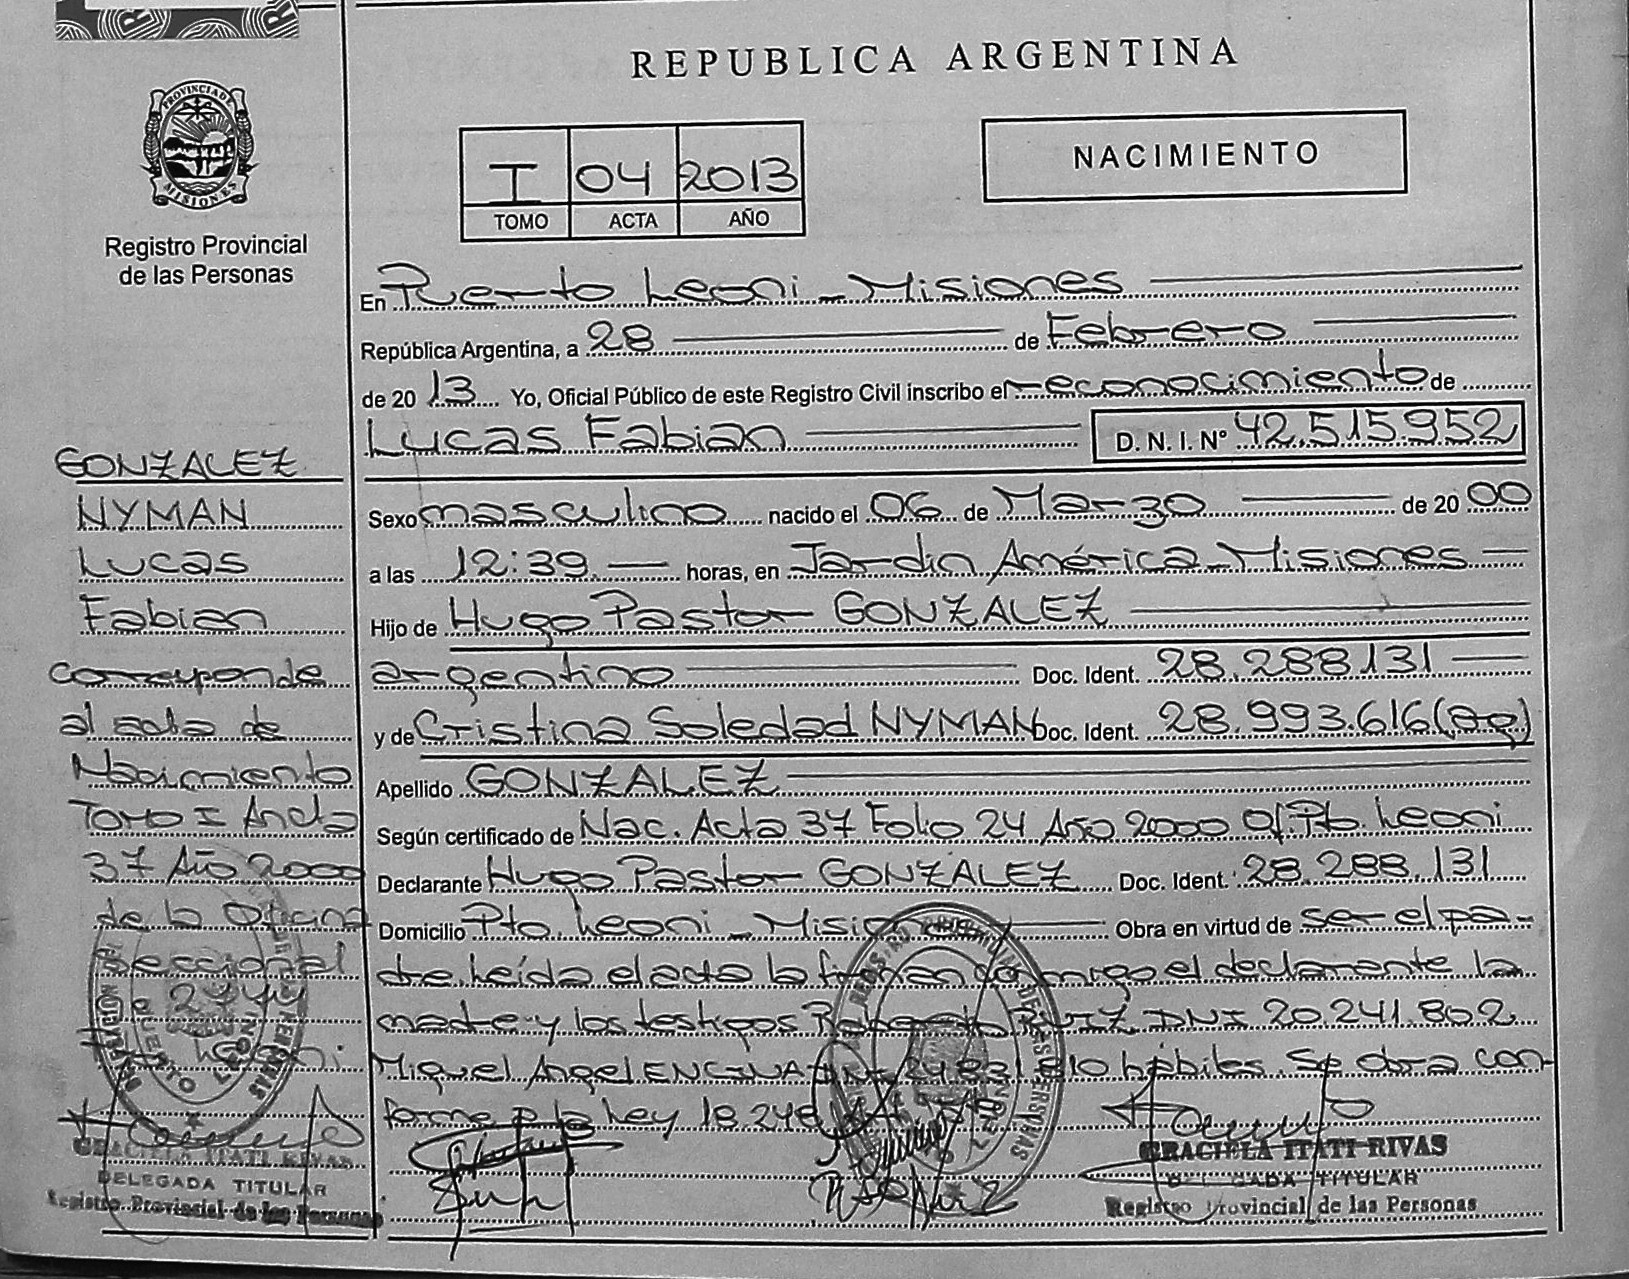 REPUBLICA ARGENTINA
PROVINCIA DE MISIONES
Registro Provincial
de las Personas
I 04 2013
TOMO ACTA AÑO
NACIMIENTO
En Puerto Leoni - Misiones
República Argentina, a 28 de Febrero
de 2013 Yo, Oficial Público de este Registro Civil inscribo el reconocimiento de
Lucas Fabian D. N. I. Nº 42.515.952
Sexo masculino nacido el 06 de Marzo de 2000
a las 12:39 horas, en Jardin América - Misiones
Hijo de Hugo Pastor GONZALEZ
argentino Doc. Ident. 28.288.131
y de Cristina Soledad NYMAN Doc. Ident. 28.993.616 (Ag)
Apellido GONZALEZ
Según certificado de Nac. Acta 37 Folio 24 Año 2000 Of. Pto. Leoni
Declarante Hugo Pastor GONZALEZ Doc. Ident. 28.288.131
Domicilio Pto. Leoni - Misiones Obra en virtud de ser el pa-
dre. Leída el acta la firman conmigo el declarante la
madre y los testigos DNI 20.241.802
Miguel Angel ENCINA hábiles. Se obra con-
forme a la Ley 18.248
GRACIELA ITATI RIVAS
DELEGADA TITULAR
Registro Provincial de las Personas
GONZALEZ
NYMAN
Lucas
Fabian
corresponde
al acta de
Nacimiento
Tomo I Acta
37 Año 2000
de la Oficina
Seccional
GRACIELA ITATI RIVAS
DELEGADA TITULAR
Registro Provincial de las Personas